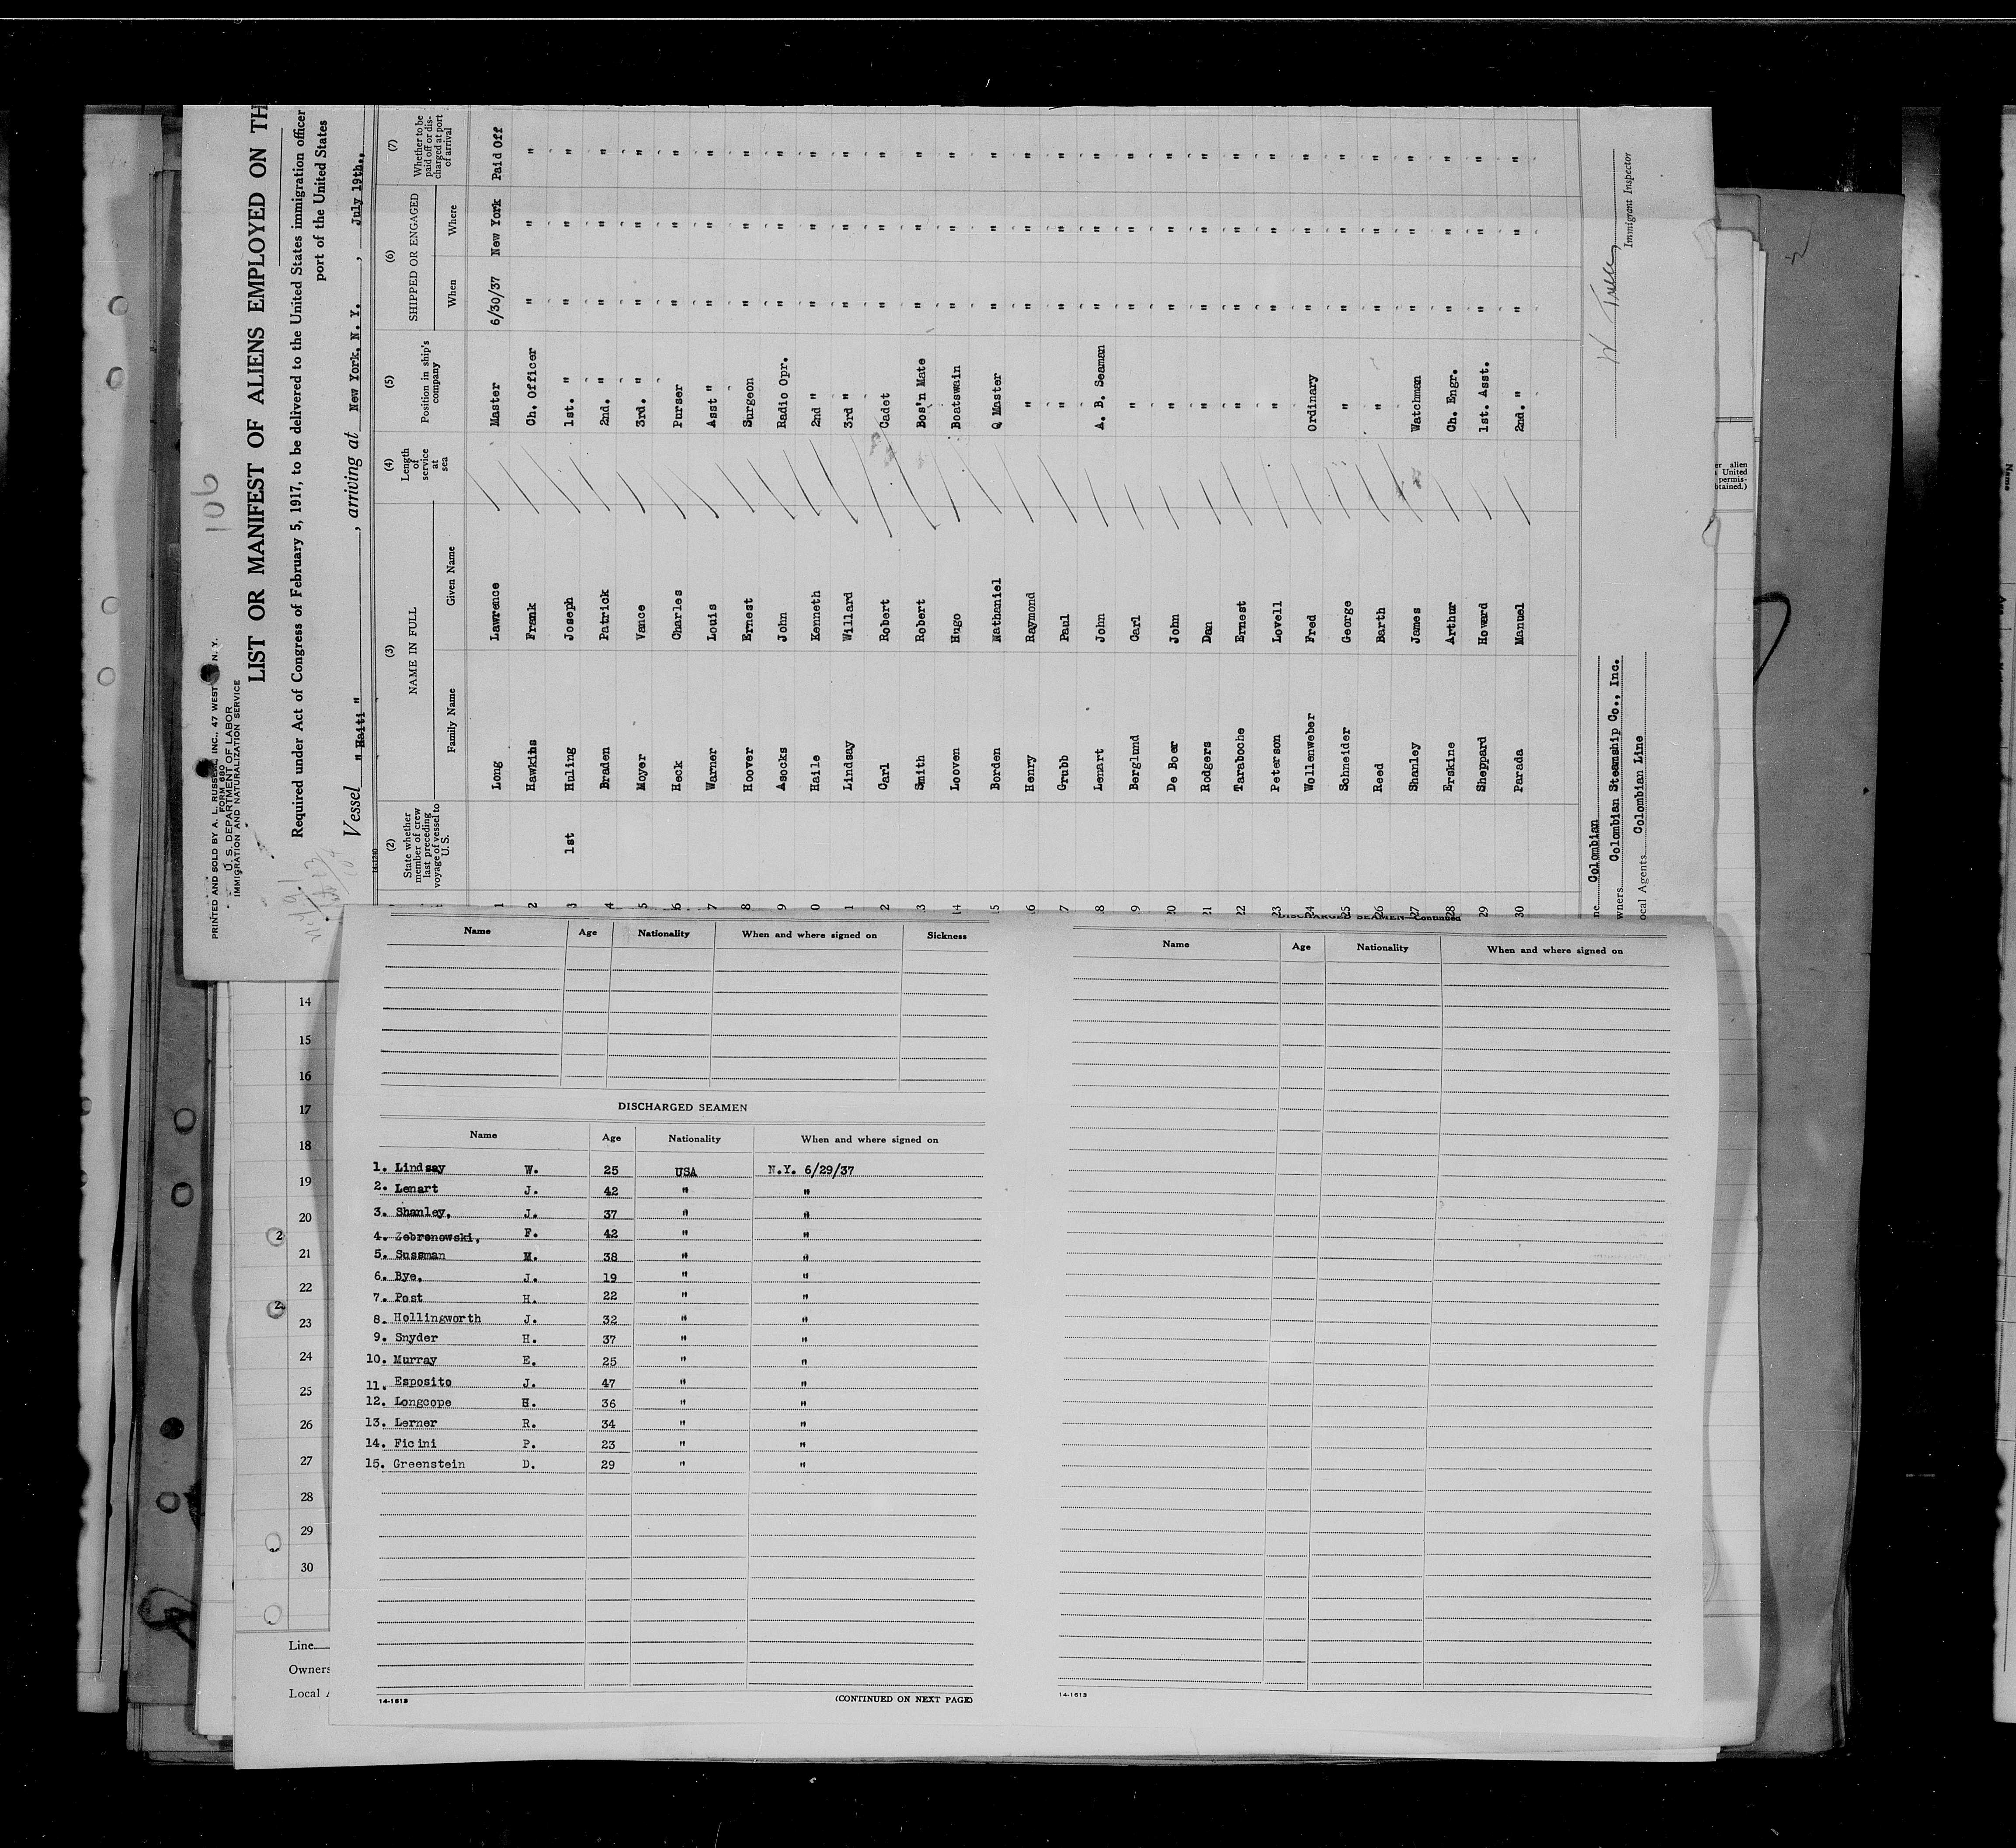 106
PRINTED AND SOLD BY A. L. RUSSELL, INC., 47 WEST N. Y.
FORM 680
U. S. DEPARTMENT OF LABOR
IMMIGRATION AND NATURALIZATION SERVICE
LIST OR MANIFEST OF ALIENS EMPLOYED ON TH
Required under Act of Congress of February 5, 1917, to be delivered to the United States immigration officer
port of the United States
Vessel " Haiti " , arriving at New York, N. Y. , July 19th.,
14-1240
(2) State whether member of crew last preceding voyage of vessel to U. S. (3) NAME IN FULL Family Name Given Name (4) Length of service at sea (5) Position in ship's company (6) SHIPPED OR ENGAGED When Where (7) Whether to be paid off or discharged at port of arrival
1 Long Lawrence Master 6/30/37 New York Paid Off
2 Hawkins Frank Ch. Officer " " "
3 1st Huling Joseph 1st. " " " "
4 Braden Patrick 2nd. " " " "
5 Moyer Vance 3rd. " " " "
6 Heck Charles Purser " " "
7 Warner Louis Asst " " " "
8 Hoover Ernest Surgeon " " "
9 Asocks John Radio Opr. " " "
0 Haile Kenneth 2nd " " " "
1 Lindsay Willard 3rd " " " "
2 Carl Robert Cadet " " "
3 Smith Robert Bos'n Mate " " "
14 Looven Hugo Boatswain " " "
15 Borden Nathaniel Q Master " " "
16 Henry Raymond " " " "
17 Grubb Paul " " " "
18 Lenart John A. B. Seaman " " "
19 Berglund Carl " " " "
20 De Boer John " " " "
21 Rodgers Dan " " " "
22 Taraboche Ernest " " " "
23 Peterson Lovell " " " "
24 Wollenweber Fred Ordinary " " "
25 Schneider George " " " "
26 Reed Barth " " " "
27 Shanley James Watchman " " "
28 Erskine Arthur Ch. Engr. " " "
29 Sheppard Howard 1st. Asst. " " "
30 Parada Manuel 2nd. " " " "
ne Colombian
wners Colombian Steamship Co., Inc.
ocal Agents Colombian Line
Immigrant Inspector
er alien
United
permis-
btained.)
Name Age Nationality When and where signed on Sickness
DISCHARGED SEAMEN
Name Age Nationality When and where signed on
1. Lindsay W. 25 USA N.Y. 6/29/37
2. Lenart J. 42 " "
3. Shanley, J. 37 " "
4. Zebronowski, F. 42 " "
5. Sussman M. 38 " "
6. Bye, J. 19 " "
7. Post H. 22 " "
8. Hollingworth J. 32 " "
9. Snyder H. 37 " "
10. Murray E. 25 " "
11. Esposito J. 47 " "
12. Longcope H. 36 " "
13. Lerner R. 34 " "
14. Ficini P. 23 " "
15. Greenstein D. 29 " "
14-1613
(CONTINUED ON NEXT PAGE)
DISCHARGED SEAMEN—Continued
Name Age Nationality When and where signed on
14-1613
14
15
16
17
18
19
20
21
22
23
24
25
26
27
28
29
30
2
2
Line
Owners
Local A
Name